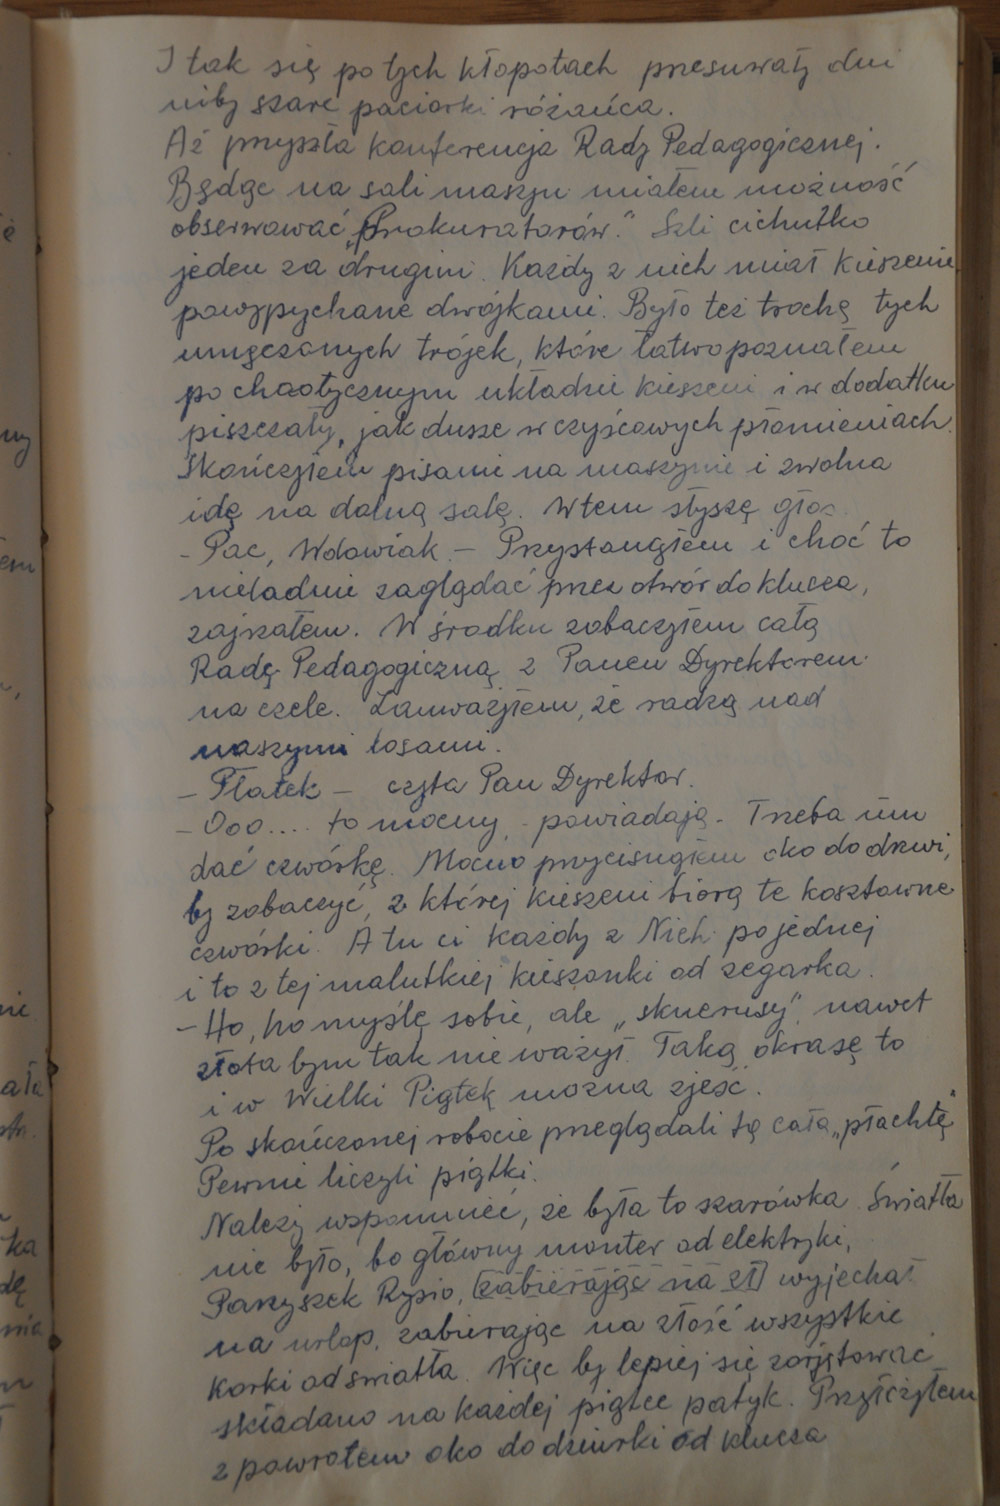 I tak się po tych kłopotach przesuwały dni
niby szare paciorki różańca.
Aż przyszła konferencja Rady Pedagogicznej.
Będąc na sali maszyn miałem możność
obserwować „Prokuratorów." Szli cichutko
jeden za drugim. Każdy z nich miał kieszenie
powypychane dwójkami. Było też trochę tych
umęczonych trójek, które łatwo poznałem
po chaotycznym układzie kieszeni i w dodatku
piszczały, jak dusze w czyśćowych płomieniach.
Skończyłem pisanie na maszynie i zwolna
idę na dolną salę. Wtem słyszę głos
- Pac, Wdowiak. - Przystanąłem i choć to
nieładnie zaglądać przez otwór do klucza,
zajrzałem. W środku zobaczyłem całą
Radę Pedagogiczną z Panem Dyrektorem
na czele. Zauważyłem, że radzą nad
naszymi losami.
- Płatek - czyta Pan Dyrektor.
- Ooo.... to mocny, - powiadają - Trzeba im
dać czwórkę. Mocno przycisnąłem oko do drzwi,
by zobaczyć, z której kieszeni biorą te kosztowne
czwórki. A tu ci każdy z Nich po jednej
i to z tej malutkiej kieszonki od zegarka.
- Ho, ho myślę sobie, ale „sknerusy", nawet
złota bym tak nie ważył. Taką okrasę to
i w Wielki Piątek można zjeść.
Po skończonej robocie przeglądali tę całą „płachtę"
Pewnie liczyli piątki.
Należy wspomnieć, że była to szarówka. Światła
nie było, bo główny monter od elektryki,
Paryszek Rysio, [zabierając na zł] wyjechał
na urlop, zabierając na złość wszystkie
korki od światła. Więc by lepiej się zorjętować
składano na każdej piątce patyk. Przyłożyłem
z powrotem oko do dziurki od klucza